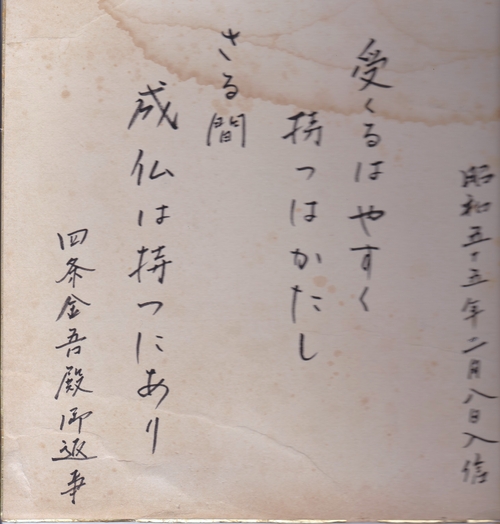 昭和五十五年二月八日入信
受くるはやすく
持つはかたし
さる間
成仏は持つにあり
四条金吾殿御返事